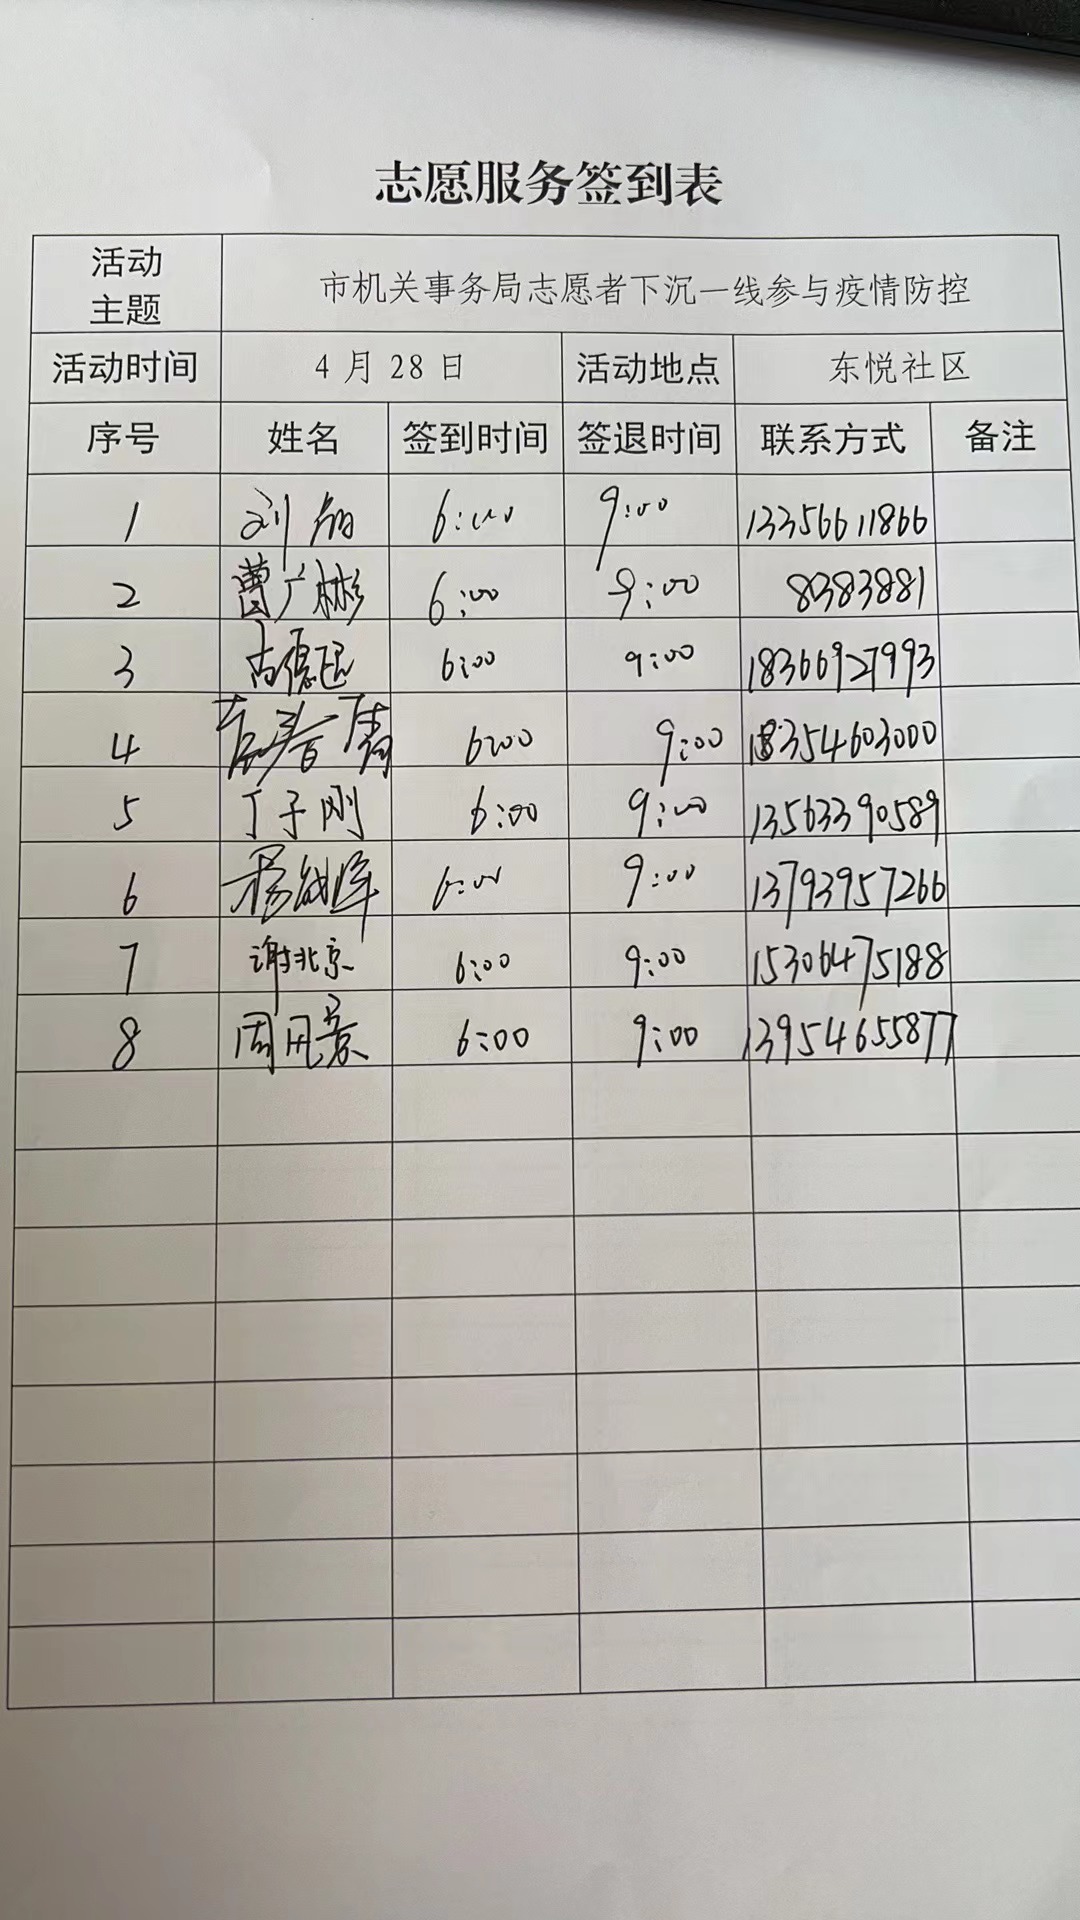 志愿服务签到表
活动主题 市机关事务局志愿者下沉一线参与疫情防控
活动时间 4月28日 活动地点 东悦社区
序号 姓名 签到时间 签退时间 联系方式 备注
1 刘 6:00 9:00 13356611866
2 曹广彬 6:00 9:00 8383881
3 尚德 6:00 9:00 18366927993
4 6:00 9:00 18354603000
5 丁子刚 6:00 9:00 13563390589
6 杨 6:00 9:00 13793957266
7 谢北京 6:00 9:00 15306475188
8 周凤景 6:00 9:00 13954655877